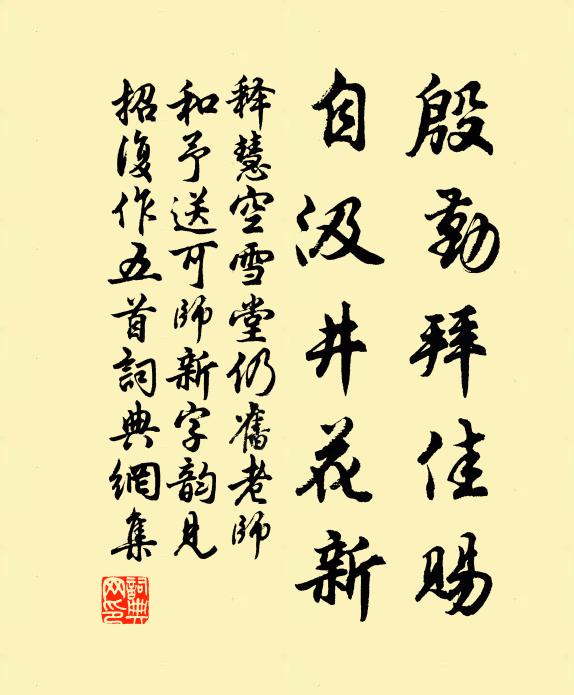 殷勤拜佳賜
自汲井花新
释慧空雪堂仍舊老師
和予送可師新字韵見
招復作五首詞典網集
詞典网印